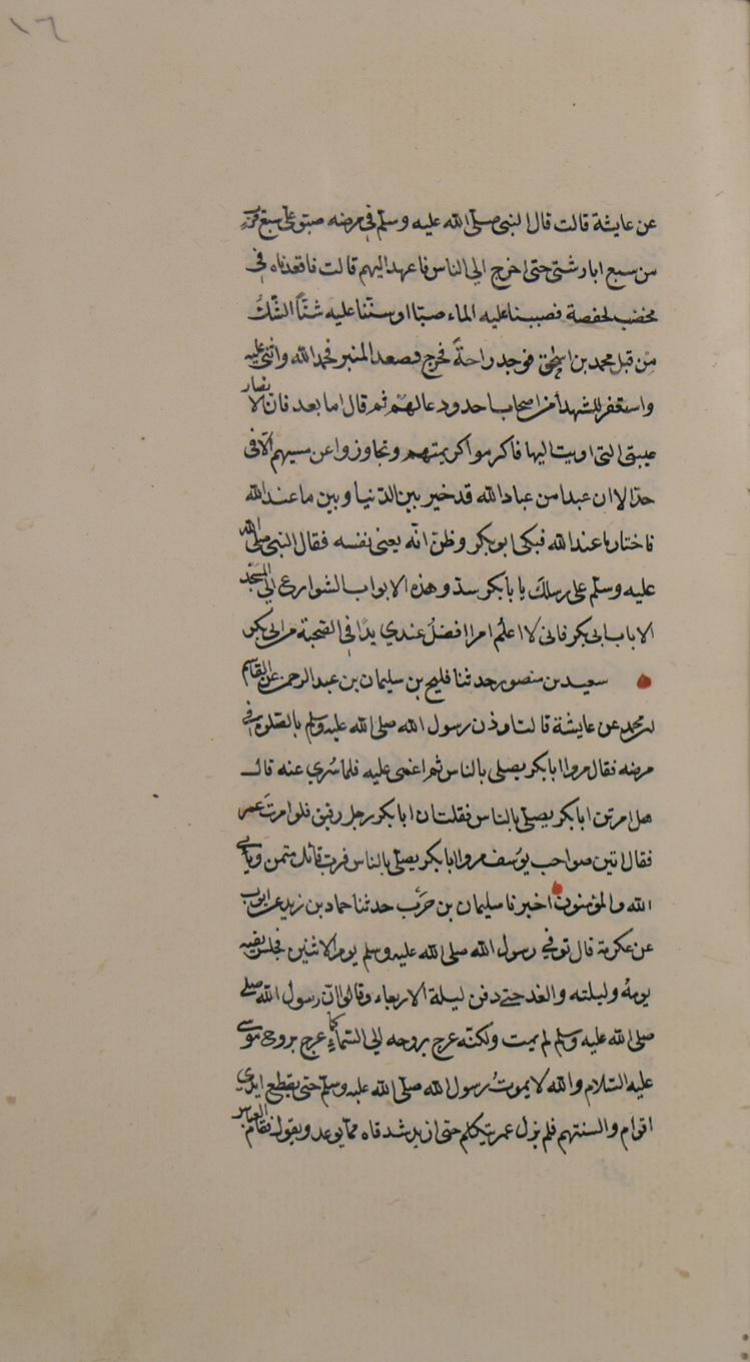 ١٦
عن عايشة قالت قال النبي صلى الله عليه وسلم في مرضه صبوا علي سبع قرب
من سبع ابار شتى حتى اخرج الي الناس فاعهد اليهم قالت فاقعدناه في
مخضب لحفصة فصببنا عليه الماء صبا او سننا عليه شنّاً الشكُ
من قبل محمد بن اسحق فوجد راحةً فخرج فصعد المنبر فحمد الله واثنى عليه
واستغفر للشهدا من اصحاب احد ودعا لهم ثم قال اما بعد فان الانصار
عيبتي التي اويت اليها فاكرموا كريمتهم وتجاوزوا عن مسيهم الا في
حد الا ان عبدا من عباد الله قد خير بين الدنيا وبين ما عند الله
فاختار ما عند الله فبكى ابو بكر وظن انه يعنى نفسه فقال النبي صلى الله
عليه وسلم على رسلك يا با بكر سدو هذه الابواب الشوارع الي المسجد
الا باب ابي بكر فاني لا اعلم امرا افضلُ عندي يدًا في الصحبة من ابي بكر
سعيد بن منصور حدثنا فليح بن سليمان بن عبد الرحمن عن القاسم
بن محمد عن عايشة قالت اوذن رسول الله صلى الله عليه وسلم بالصلوة في
مرضه فقال مروا ابا بكر يصلي بالناس ثم اغمى عليه فلما سُري عنه قال
هل امرتن ابا بكر يصلي بالناس فقلت ان ابا بكر رجل رقيق فلو امرت عمر
فقال انتين صواحب يوُسف مروا ابا بكر يصلي بالناس فرب قائل متمن ويأبى
الله والمؤمنون اخبرنا سليمان بن حرب حدثنا حماد بن زيد عن ايوب
عن عكرمة قال توفي رسول الله صلى الله عليه وسلم يوم الاثنين فحبس بقيه
يومهُ وليلته والغد حتى دفن ليلة الاربعاء وقالوا ان رسول الله صلى
صلى الله عليه وسلم لم يمت ولكنه عرج بروحه الي السماء كما عرج بروح موسى
عليه السلام والله لا يموتُ رسول الله صلى الله عليه وسلم حتى يقطع ايدي
اقوام والسنتهم فلم يزل عمر يتكلم حتى ازبد شدقاه مما يوعد ويقول فقام العباس